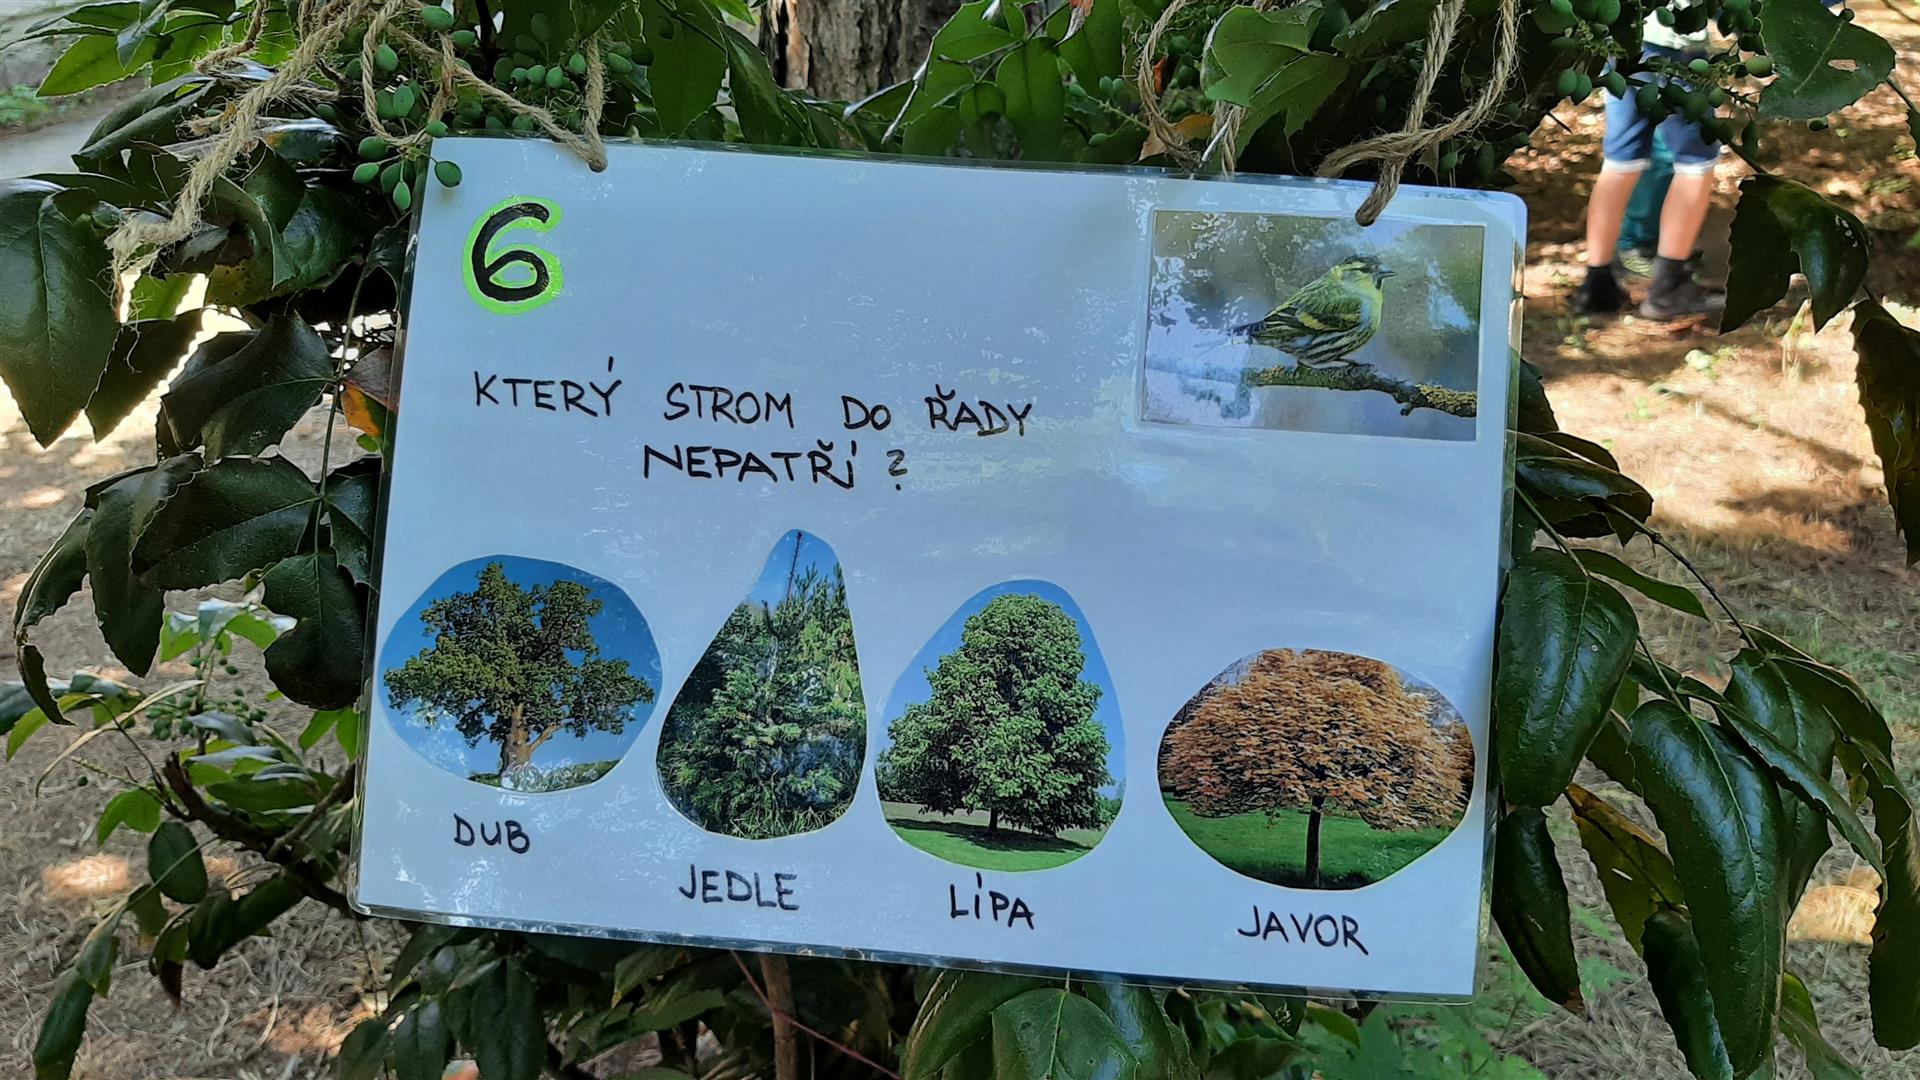 6
KTERÝ STROM DO ŘADY
NEPATŘÍ ?
DUB
JEDLE
LÍPA
JAVOR